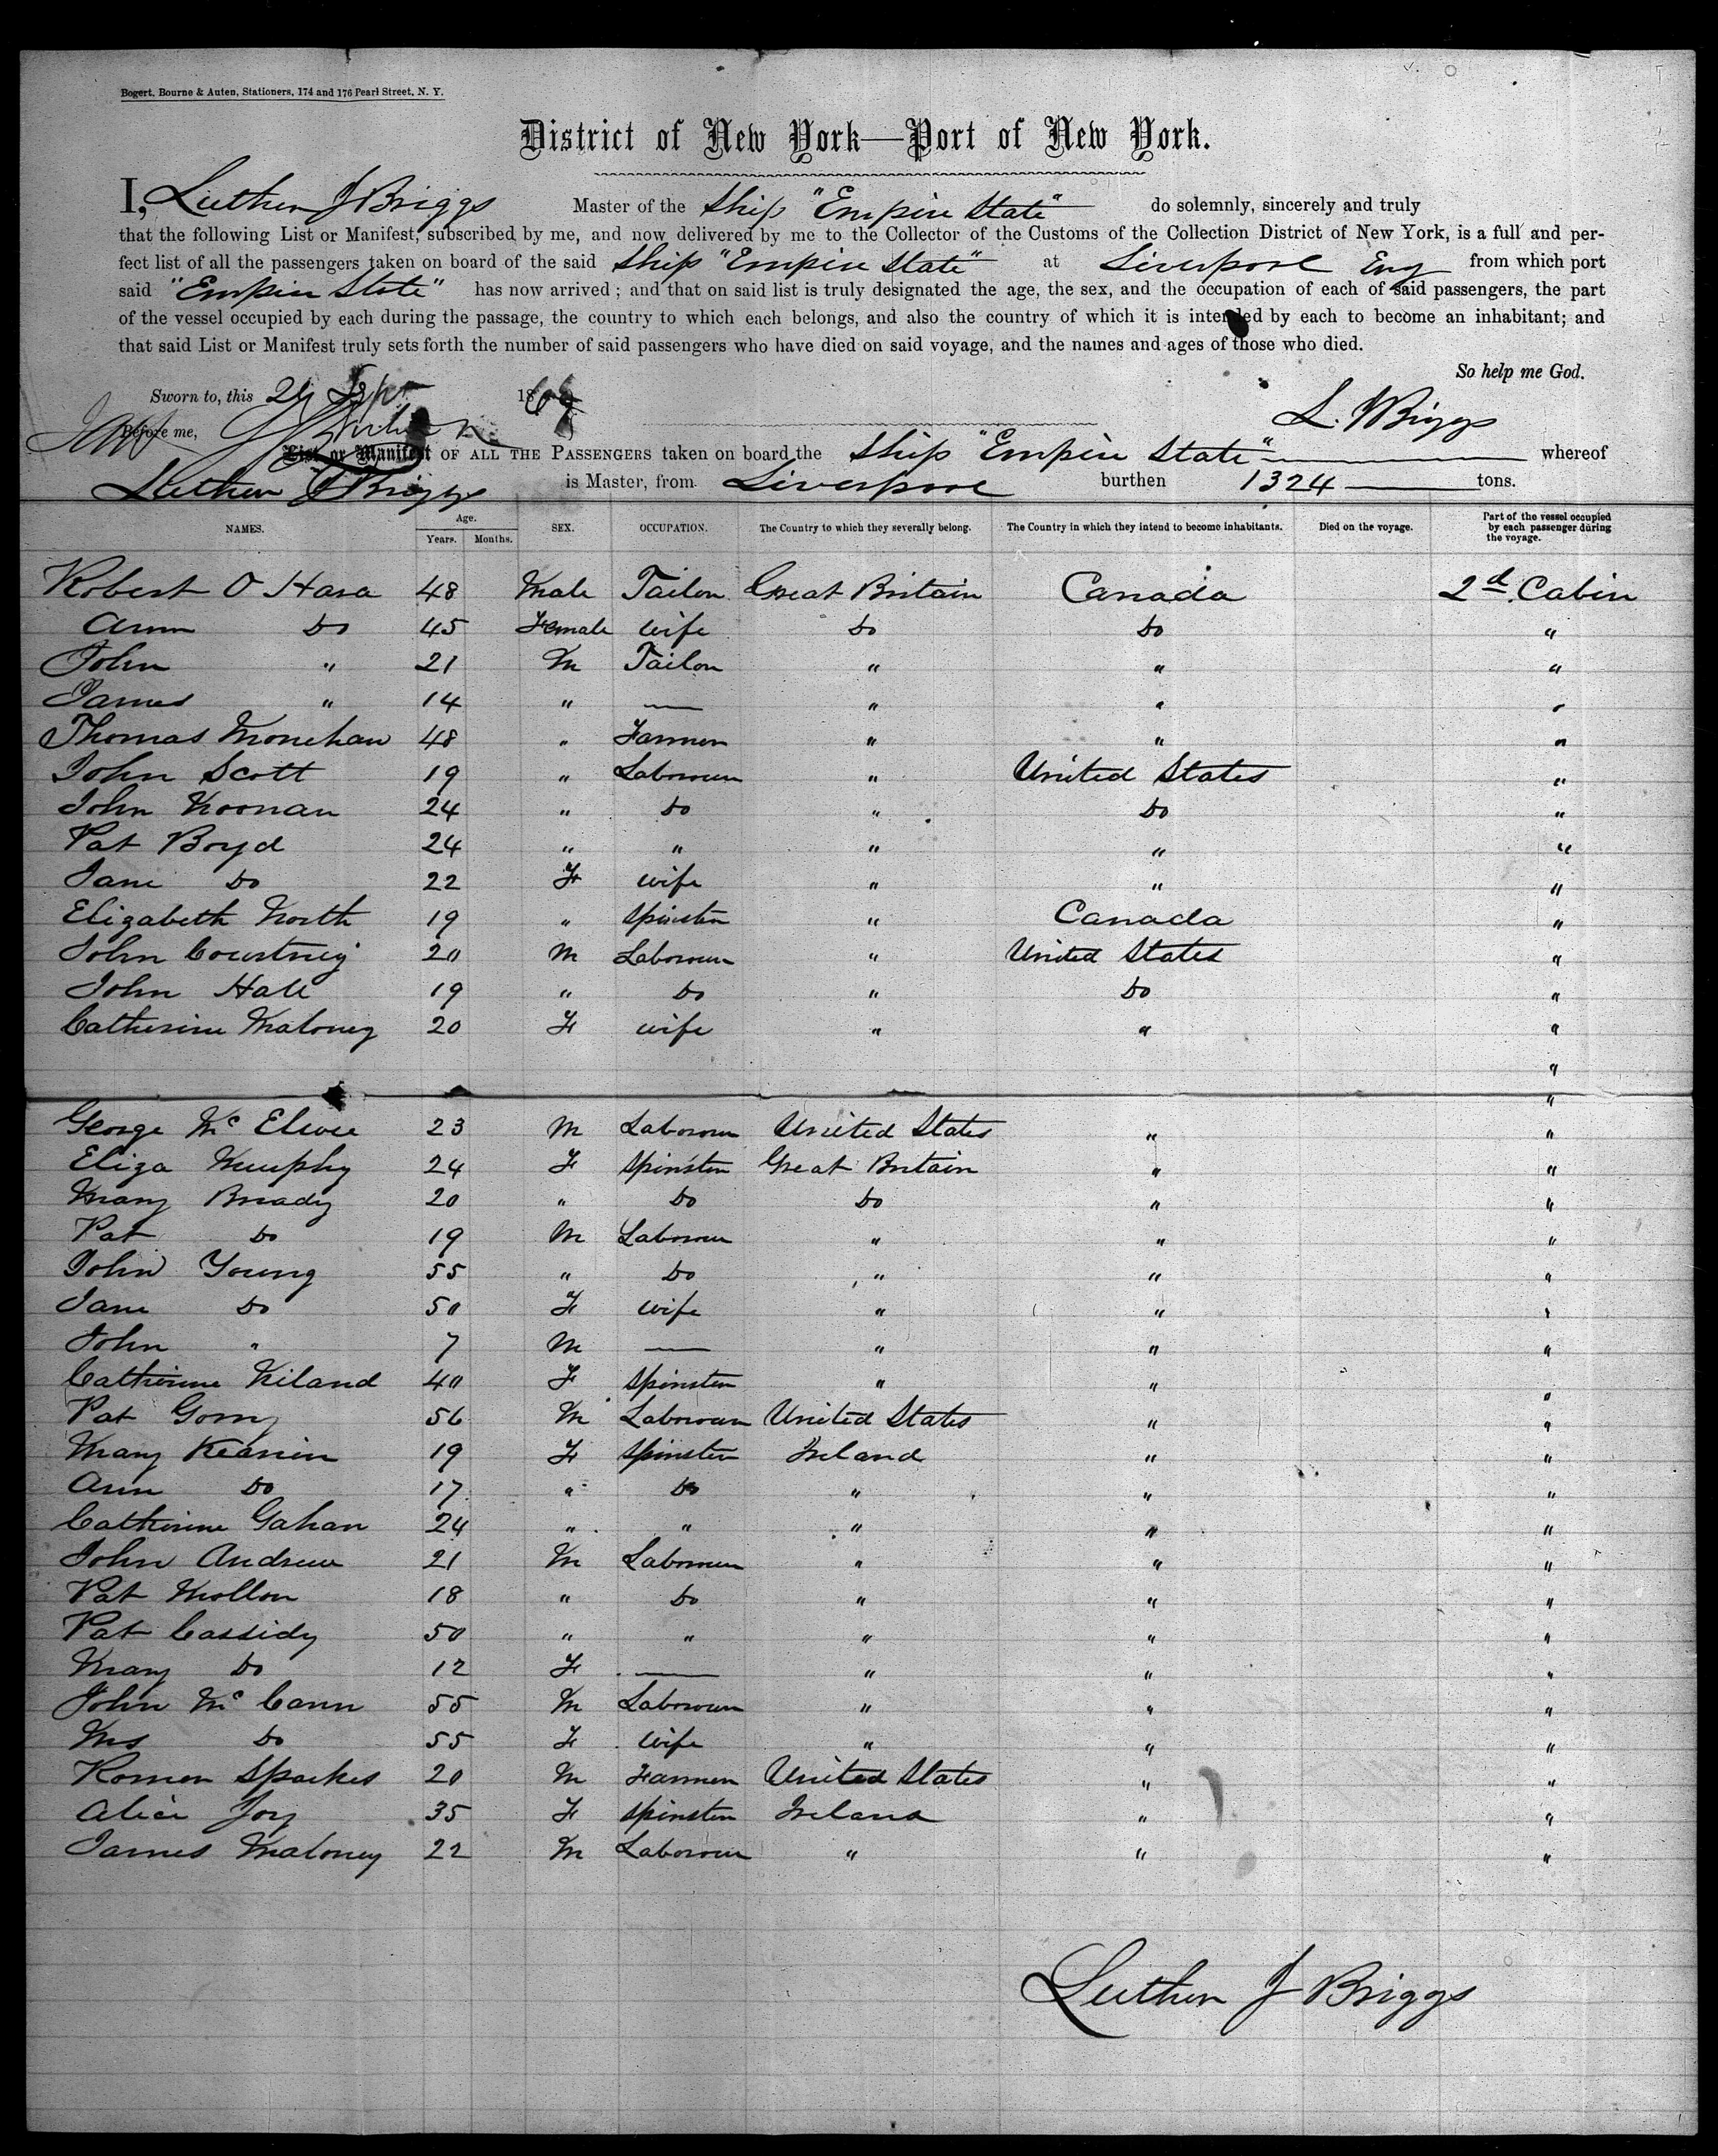 Bogert, Bourne & Auten, Stationers, 174 and 176 Pearl Street, N. Y.
District of New York—Port of New York.
I, Luther J Briggs Master of the Ship "Empire State" do solemnly, sincerely and truly
that the following List or Manifest, subscribed by me, and now delivered by me to the Collector of the Customs of the Collection District of New York, is a full and per-
fect list of all the passengers taken on board of the said Ship "Empire State" at Liverpool Eng from which port
said "Empire State" has now arrived; and that on said list is truly designated the age, the sex, and the occupation of each of said passengers, the part
of the vessel occupied by each during the passage, the country to which each belongs, and also the country of which it is intended by each to become an inhabitant; and
that said List or Manifest truly sets forth the number of said passengers who have died on said voyage, and the names and ages of those who died.
So help me God.
Sworn to, this Sept 186
L. J Briggs
Before me,
List or Manifest OF ALL THE PASSENGERS taken on board the Ship "Empire State" whereof
Luther J Briggs is Master, from Liverpool burthen 1324 tons.
NAMES. Age. Years. Months. SEX. OCCUPATION. The Country to which they severally belong. The Country in which they intend to become inhabitants. Died on the voyage. Part of the vessel occupied by each passenger during the voyage.
Robert O Hara 48 Male Tailor Great Britain Canada 2d Cabin
Ann Do 45 Female wife Do Do "
John " 21 M Tailor " " "
James " 14 " — " " "
Thomas Monehan 48 " Farmer " " "
John Scott 19 " Labourer " United States "
John Noonan 24 " Do " Do "
Pat Boyd 24 " " " " "
Jane Do 22 F wife " " "
Elizabeth North 19 " Spinster " Canada "
John Courtney 20 M Labourer " United States "
John Hale 19 " Do " Do "
Catherine Maloney 20 F wife " " "
"
"
George Mc Elwee 23 M Labourer United States " "
Eliza Murphy 24 F Spinster Great Britain " "
Mary Bready 20 " Do Do " "
Pat Do 19 M Labourer " " "
John Young 55 " Do " " "
Jane Do 50 F wife " " "
John " 7 M — " " "
Catherine Kiland 40 F Spinster " " "
Pat Gorry 56 M Labourer United States " "
Mary Kearin 19 F Spinster Ireland " "
Ann Do 17 " Do " " "
Catherine Gahan 24 " " " " "
John Andrew 21 M Labourer " " "
Pat Mollon 18 " Do " " "
Pat Cassidy 50 " " " " "
Mary Do 12 F — " " "
John Mc Cann 55 M Labourer " " "
Mrs Do 55 F wife " " "
Sparkes 20 M Farmer United States " "
Alice Joy 35 F Spinster Ireland " "
James Maloney 22 M Labourer " " "
Luther J Briggs